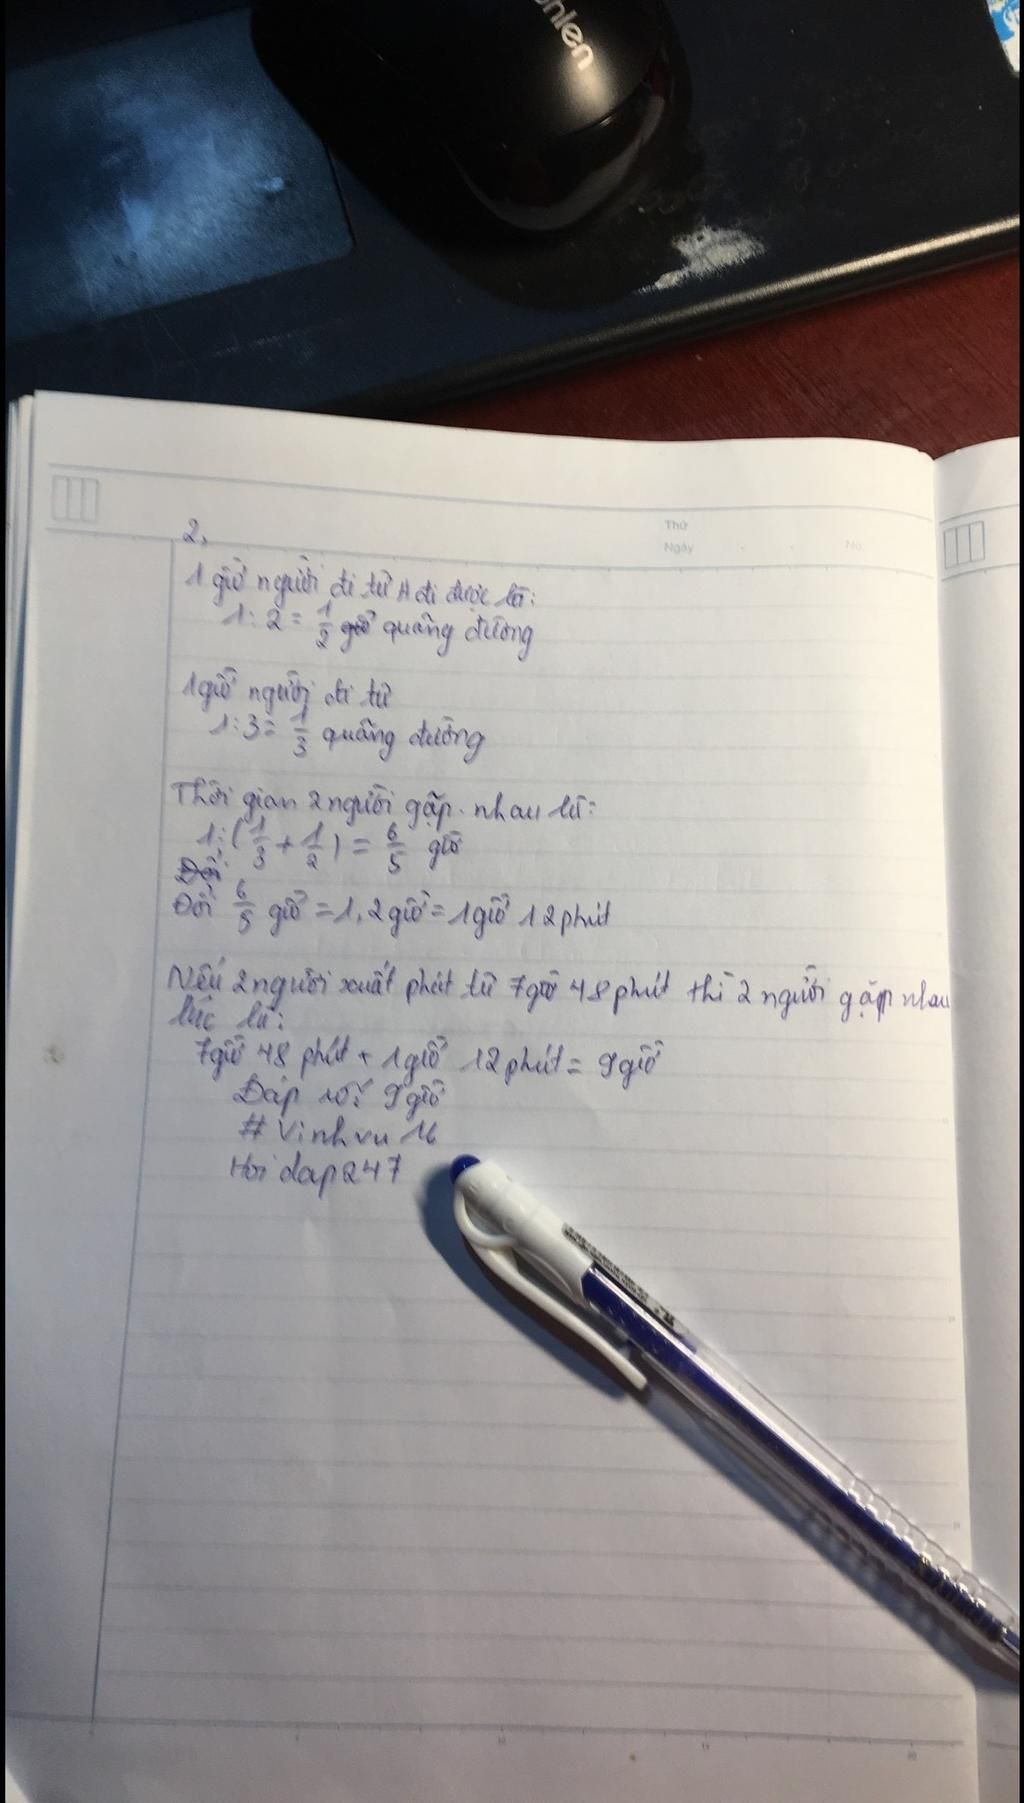 ohlen
Thứ
Ngày
No.
2,
1 giờ người đi từ A đi được là:
1 : 2 = 1/2 giờ quãng đường
1 giờ người đi từ
1 : 3 = 1/3 quãng đường
Thời gian 2 người gặp nhau là:
1 : ( 1/3 + 1/2 ) = 6/5 giờ
Đổi
Đổi 6/5 giờ = 1,2 giờ = 1 giờ 12 phút
Nếu 2 người xuất phát từ 7 giờ 48 phút thì 2 người gặp nhau
lúc là:
7 giờ 48 phút + 1 giờ 12 phút = 9 giờ
Đáp số: 9 giờ
# Vinhvu16
Hoi dap247